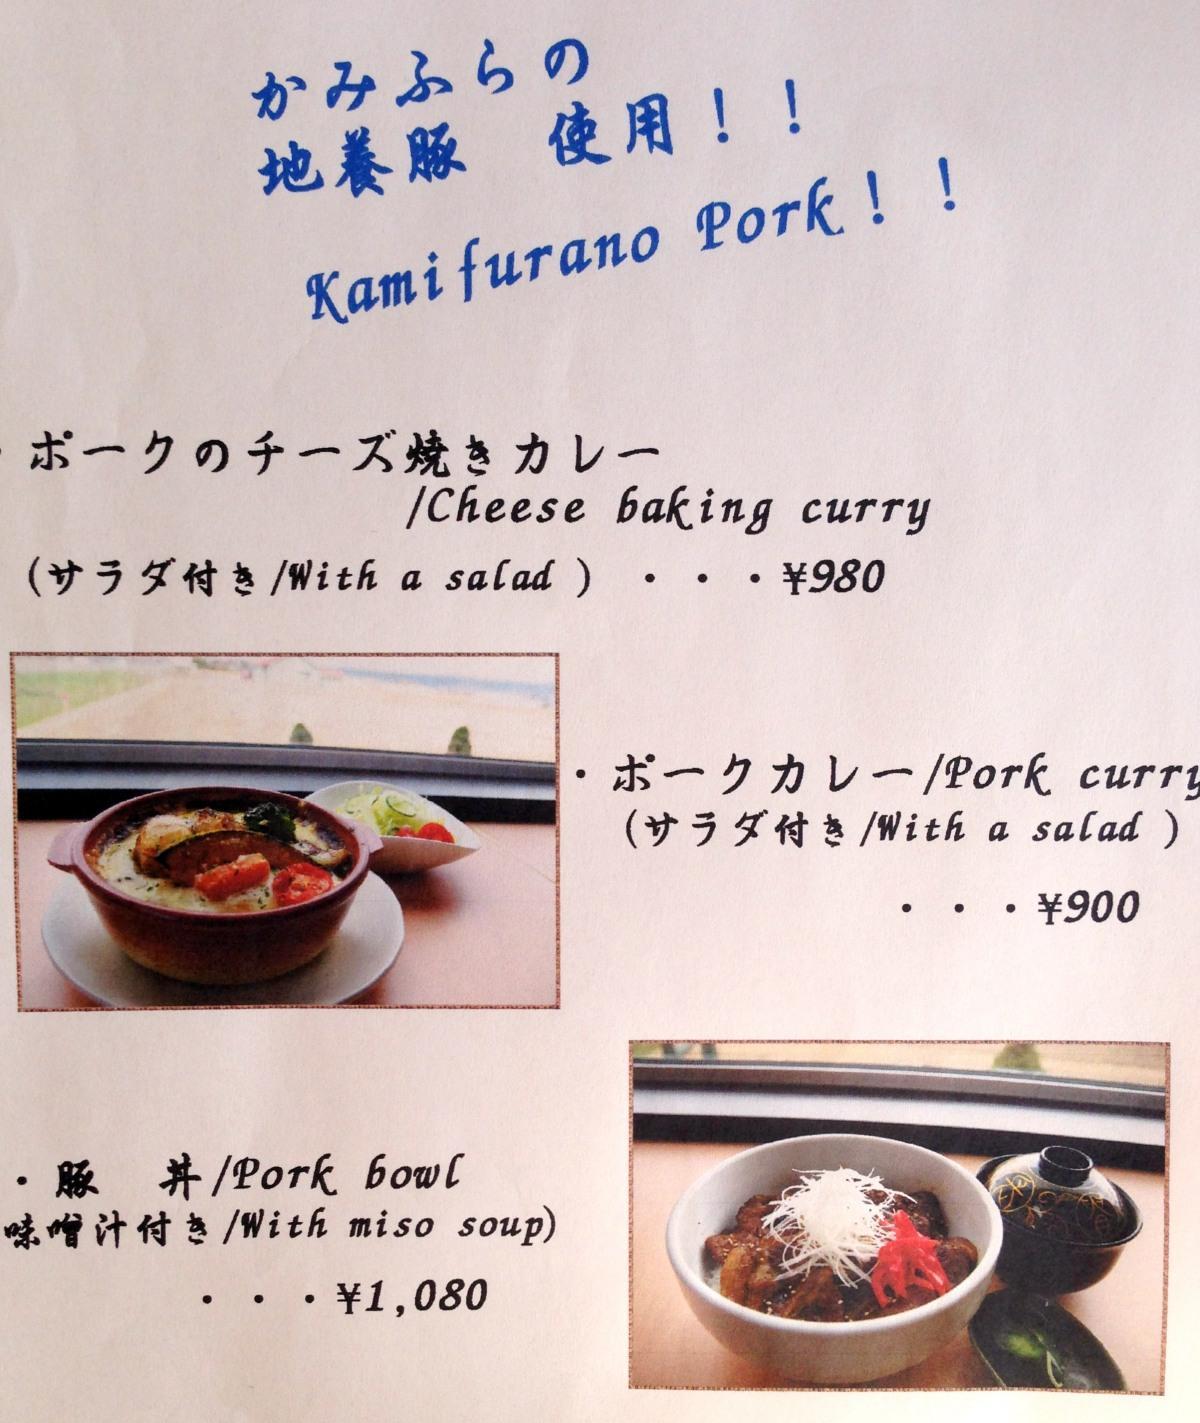 かみふらの
地養豚　使用！！
Kamifurano Pork！！
・ポークのチーズ焼きカレー
/Cheese baking curry
(サラダ付き/With a salad ) ・・・¥980
・ポークカレー/Pork curry
(サラダ付き/With a salad )
・・・¥900
・豚　丼/Pork bowl
味噌汁付き/With miso soup)
・・・¥1,080